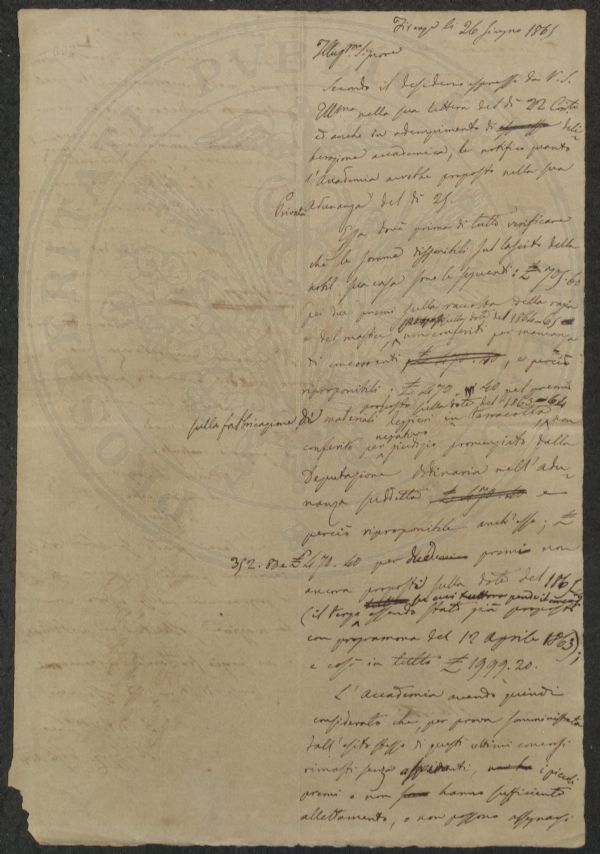 Firenze li 26 Giugno 1865
Illus.mo Signore
Secondo il desiderio espresso da V.S.
Ill.ma nella sua lettera del dì 22 Corr.te
ed anche in adempimento di deli-
berazione accademica, le notifico quanto
l'Accademia avrebbe proposto nella sua
Privata
adunanza del dì 25.
Essa dové prima di tutto verificare
che le somme disponibili sul lascito della
nobil sua casa sono le seguenti: £ 705.60
pei due premi sulla raccolta della ragia
sulla dote del 1864-65
e del mastice non conferiti per mancanza
di concorrenti £ 470.40, e perciò
riproponibili: £ 470.40 pel premio
proposto sulla dote del 1863-64
sulla fabbricazione di materiali leggieri in terracotta non
negativo
conferito per giudizio pronunziato dalla
Deputazione Ordinaria nell'adu-
nanza suddetta £ 470.40 e
perciò riproponibile anch'esso; £
352.80 e £ 470.40 per due premi non
ancora proposti sulla dote del 1865
per cui tuttora pende il concorso
(il terzo essendo stato già proposto
con programma del 12 Aprile 1863);
e così in tutto £ 1999.20.
L'Accademia avendo quindi
considerato che, per prova somministrata
dall'esito stesso di questi ultimi concorsi
rimasti senza aspiranti, i piccoli
premi o non hanno sufficiente
allettamento, o non possono assegnarsi